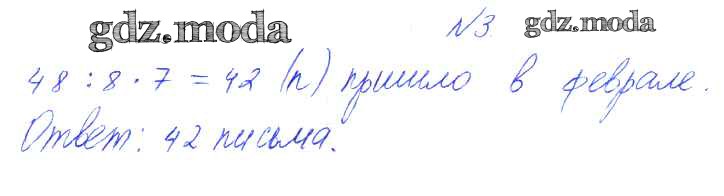 gdz.moda №3. gdz.moda
48 : 8 · 7 = 42 (п) пришло в феврале.
Ответ: 42 письма.